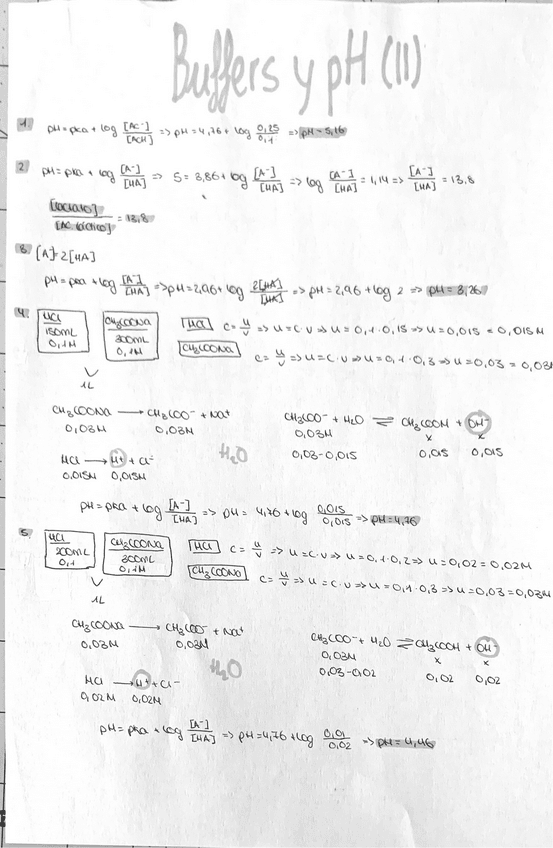 Buffers y pH (II)
1. pH = pka + log [AC⁻]/[ACH] => pH = 4,76 + log 0,25/0,1 => pH = 5,16
2. pH = pka + log [A⁻]/[HA] => 5 = 3,86 + log [A⁻]/[HA] => log [A⁻]/[HA] = 1,14 => [A⁻]/[HA] = 13,8
[lactato]/[AC. láctico] = 13,8
3. [A⁻]=2[HA]
pH = pka + log [A⁻]/[HA] => pH = 2,96 + log 2[HA]/[HA] => pH = 2,96 + log 2 => pH = 3,26
4. HCl 150mL 0,1M
CH₃COONa 300mL 0,1M
HCl c = n/v => n = c·v => n = 0,1·0,15 => n = 0,015 = 0,015M
CH₃COONa c = n/v => n = c·v => n = 0,1·0,3 => n = 0,03 = 0,03M
1L
CH₃COONa → CH₃COO⁻ + Na⁺
0,03M 0,03M
CH₃COO⁻ + H₂O ⇌ CH₃COOH + OH⁻
0,03M x x
0,03-0,015 0,015 0,015
HCl → H⁺ + Cl⁻
0,015M 0,015M
H₂O
pH = pka + log [A⁻]/[HA] => pH = 4,76 + log 0,015/0,015 => pH = 4,76
5. HCl 200mL 0,1
CH₃COONa 300mL 0,1M
HCl c = n/v => n = c·v => n = 0,1·0,2 => n = 0,02 = 0,02M
CH₃COONa c = n/v => n = c·v => n = 0,1·0,3 => n = 0,03 = 0,03M
1L
CH₃COONa → CH₃COO⁻ + Na⁺
0,03M 0,03M
CH₃COO⁻ + H₂O ⇌ CH₃COOH + OH⁻
0,03M x x
0,03-0,02 0,02 0,02
H₂O
HCl → H⁺ + Cl⁻
0,02M 0,02M
pH = pka + log [A⁻]/[HA] => pH = 4,76 + log 0,01/0,02 => pH = 4,46